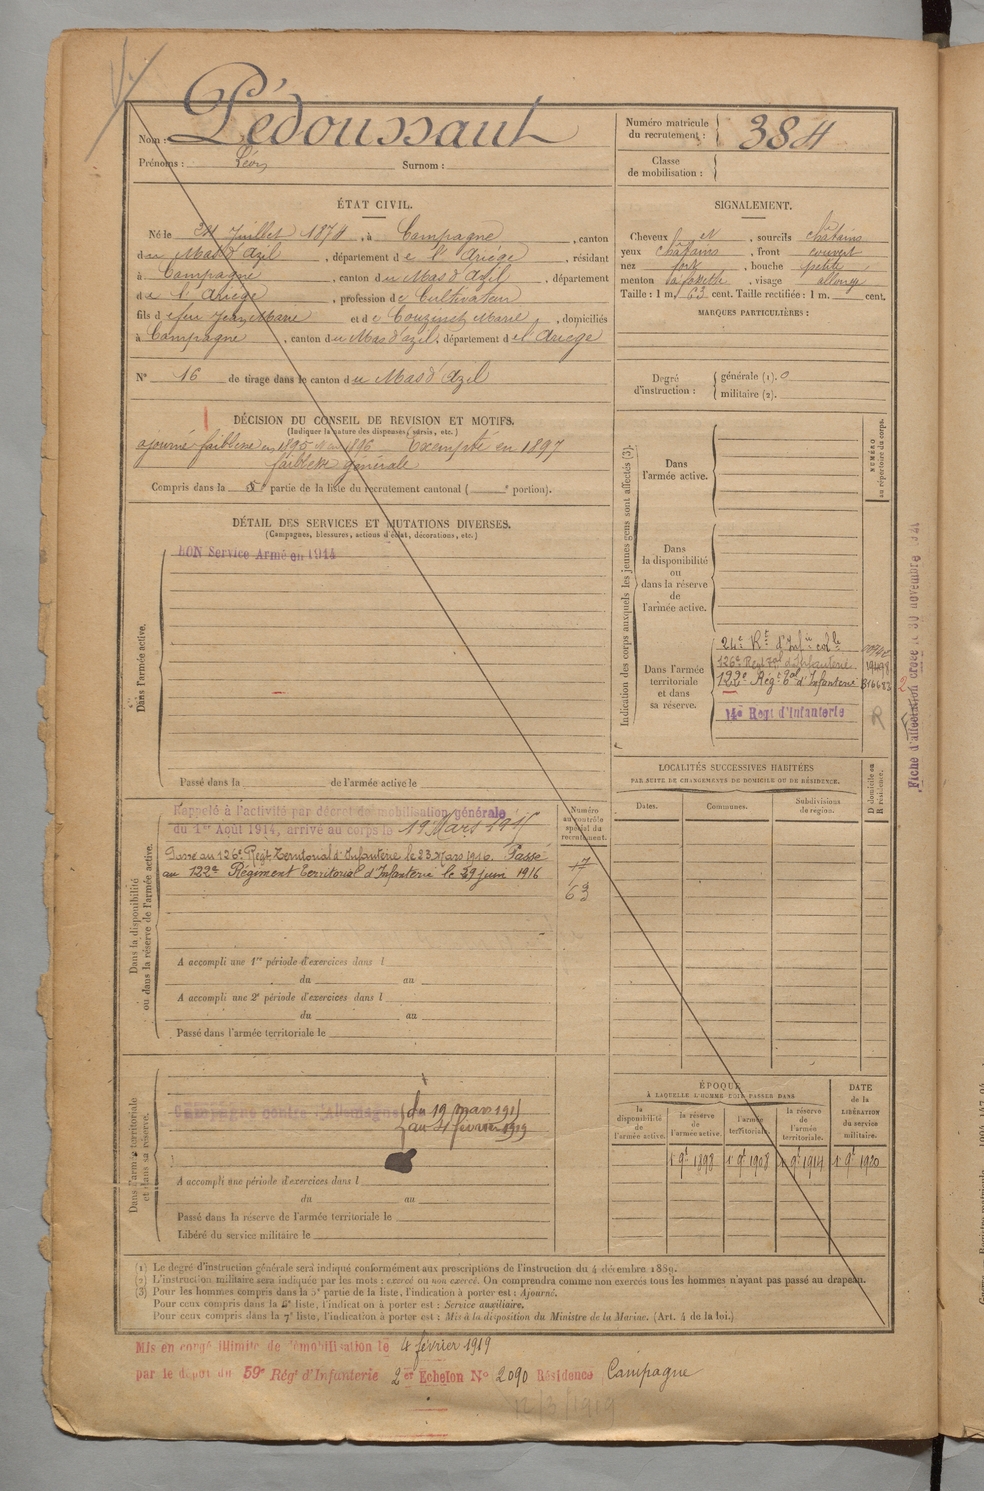 Nom : Pédoussaut
Prénoms : Léon Surnom :
Numéro matricule du recrutement : 384
Classe de mobilisation :
ÉTAT CIVIL.
Né le 24 Juillet 1874, à Campagne, canton
du Mas d'Azil, département de l'Ariège, résidant
à Campagne, canton du Mas d'Azil, département
de l'Ariège, profession de Cultivateur
fils de feu Jean Marie et de Couzenst Marie, domiciliés
à Campagne, canton du Mas d'azil, département de l'Ariège
N° 16 de tirage dans le canton du Mas d'Azil
SIGNALEMENT.
Cheveux N, sourcils châtains
yeux châtains, front couvert
nez fort, bouche petite
menton à fossette, visage allongé
Taille : 1 m. 63 cent. Taille rectifiée : 1 m. cent.
MARQUES PARTICULIÈRES :
Degré d'instruction : générale (1). 0
militaire (2).
DÉCISION DU CONSEIL DE REVISION ET MOTIFS.
(Indiquer la nature des dispenses, sursis, etc.)
ajourné faiblesse en 1895 et en 1896 Exempté en 1897
faiblesse générale
Compris dans la 5e partie de la liste du recrutement cantonal ( e portion).
DÉTAIL DES SERVICES ET MUTATIONS DIVERSES.
(Campagnes, blessures, actions d'éclat, décorations, etc.)
Dans l'armée active.
BON Service Armé en 1914
Passé dans la de l'armée active le
Indication des corps auxquels les jeunes gens sont affectés (3).
NUMÉRO au répertoire du corps.
Dans l'armée active.
Dans la disponibilité ou dans la réserve de l'armée active.
Dans l'armée territoriale et dans sa réserve.
24e Rt d'Infie colle
126e Regt Tal d'Infanterie 19498
122e Régt Tal d'Infanterie 316683
14e Regt d'Infanterie R
Fiche d'affectation créée le 30 novembre
LOCALITÉS SUCCESSIVES HABITÉES
PAR SUITE DE CHANGEMENTS DE DOMICILE OU DE RÉSIDENCE.
Dates. Communes. Subdivisions de région. D domicile ou R résidence.
Dans la disponibilité ou dans la réserve de l'armée active.
Numéro au contrôle spécial du recrutement.
Rappelé à l'activité par décret de mobilisation générale
du 1er Août 1914, arrivé au corps le 19 Mars 1915
Passé au 126e Regt Territorial d'Infanterie le 23 Mars 1916. Passé
au 122e Régiment Territorial d'Infanterie le 29 juin 1916
17
63
A accompli une 1re période d'exercices dans l
du au
A accompli une 2e période d'exercices dans l
du au
Passé dans l'armée territoriale le
Dans l'armée territoriale et dans sa réserve.
Campagne contre l'Allemagne du 19 mars 1915
au 4 février 1919
A accompli une période d'exercices dans l
du au
Passé dans la réserve de l'armée territoriale le
Libéré du service militaire le
ÉPOQUE
À LAQUELLE L'HOMME DOIT PASSER DANS
la disponibilité de l'armée active. la réserve de l'armée active. l'armée territoriale. la réserve de l'armée territoriale. DATE de la LIBÉRATION du service militaire.
1er 9bre 1898 1er 9bre 1908 1er 9bre 1914 1er 9bre 1920
(1) Le degré d'instruction générale sera indiqué conformément aux prescriptions de l'instruction du 4 décembre 1889.
(2) L'instruction militaire sera indiquée par les mots : exercé ou non exercé. On comprendra comme non exercés tous les hommes n'ayant pas passé au drapeau.
(3) Pour les hommes compris dans la 5e partie de la liste, l'indication à porter est : Ajourné.
Pour ceux compris dans la 6e liste, l'indication à porter est : Service auxiliaire.
Pour ceux compris dans la 7e liste, l'indication à porter est : Mis à la disposition du Ministre de la Marine. (Art. 4 de la loi.)
Mis en congé illimité de démobilisation le 4 février 1919
par le dépôt du 59e Régt d'Infanterie 2er Echelon N° 2090 Résidence Campagne
12/3/1919